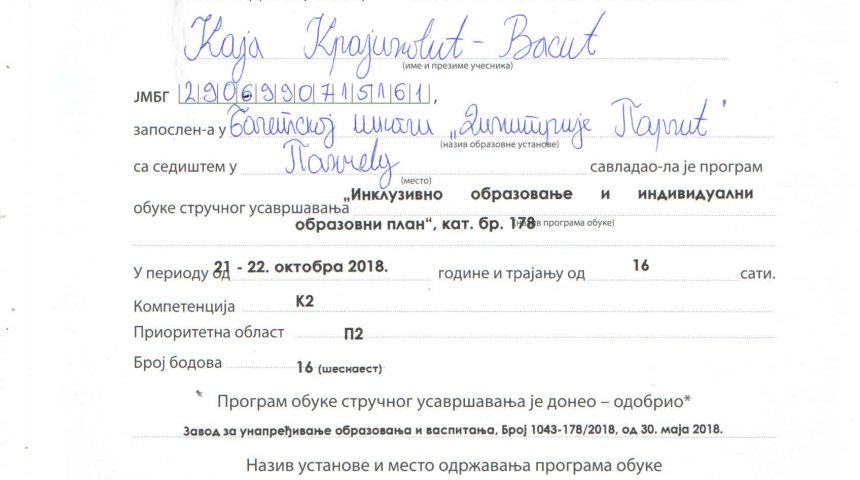 Каја Крајиновић - Васић
(име и презиме учесника)
ЈМБГ 2906990715161,
запослен-а у Балетској школи „Димитрије Парлић"
(назив образовне установе)
са седиштем у Панчеву савладао-ла је програм
(место)
„Инклузивно образовање и индивидуални
обуке стручног усавршавања
образовни план“, кат. бр. 178
(назив програма обуке)
У периоду од 21 - 22. октобра 2018. године и трајању од 16 сати.
Компетенција К2
Приоритетна област П2
Број бодова 16 (шеснаест)
Програм обуке стручног усавршавања је донео – одобрио*
Завод за унапређивање образовања и васпитања, Број 1043-178/2018, од 30. маја 2018.
Назив установе и место одржавања програма обуке